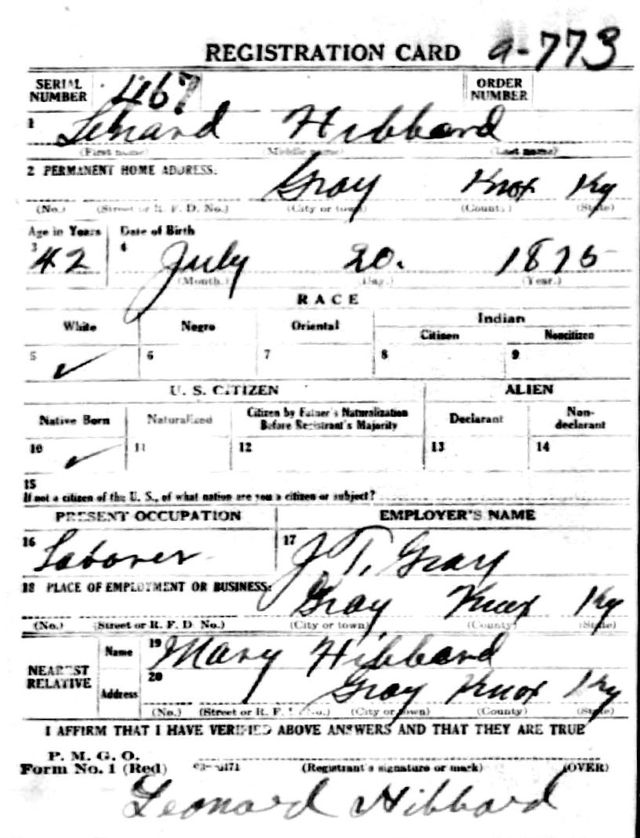 REGISTRATION CARD a-773
SERIAL NUMBER 467 ORDER NUMBER
1 Lenard Hibbard
(First name) (Middle name) (Last name)
2 PERMANENT HOME ADDRESS:
Gray Knox Ky
(No.) (Street or R. F. D. No.) (City or town) (County) (State)
Age in Years Date of Birth
3 42 4 July 20. 1876
(Month.) (Day.) (Year.)
RACE
White Negro Oriental Indian
Citizen Noncitizen
5 ✓ 6 7 8 9
U. S. CITIZEN ALIEN
Native Born Naturalized Citizen by Father's Naturalization Before Registrant's Majority Declarant Non-declarant
10 ✓ 11 12 13 14
15
If not a citizen of the U. S., of what nation are you a citizen or subject?
PRESENT OCCUPATION EMPLOYER'S NAME
16 Laborer 17 J T. Gray
18 PLACE OF EMPLOYMENT OR BUSINESS:
Gray Knox Ky
(No.) (Street or R. F. D. No.) (City or town) (County) (State)
NEAREST RELATIVE
Name 19 Mary Hibbard
Address 20 Gray Knox Ky
(No.) (Street or R. F. D. No.) (City or town) (County) (State)
I AFFIRM THAT I HAVE VERIFIED ABOVE ANSWERS AND THAT THEY ARE TRUE
P. M. G. O.
Form No. 1 (Red) (Registrant's signature or mark) (OVER)
Leonard Hibbard